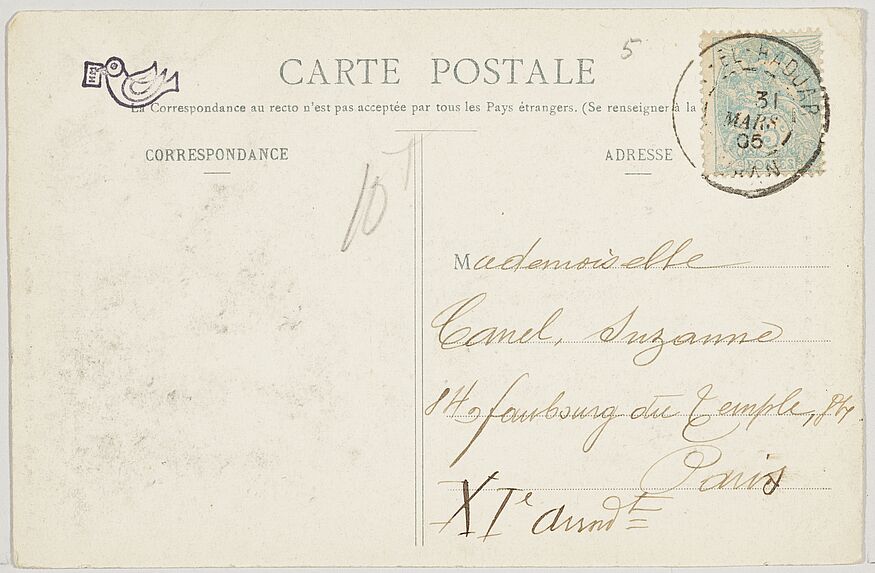 5
HM
CARTE POSTALE
La Correspondance au recto n'est pas acceptée par tous les Pays étrangers. (Se renseigner à la
CORRESPONDANCE
ADRESSE
EL-HADJAR
31
MARS
05
ORAN
10
Mademoiselle
Canel, Suzanne
84, faubourg du Temple, 84,
Paris
XIe arrondt